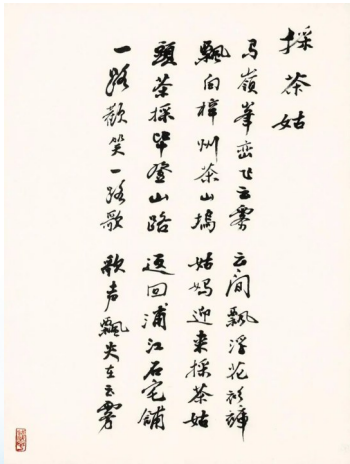 採茶姑
马嶺峯峦飞云雾　云间飄浮花衫裤
飄向樟州茶山塢　姑妈迎来採茶姑
頭茶採毕登山路　返回浦江石宅铺
一路歡笑一路歌　歌声飄失在云雾